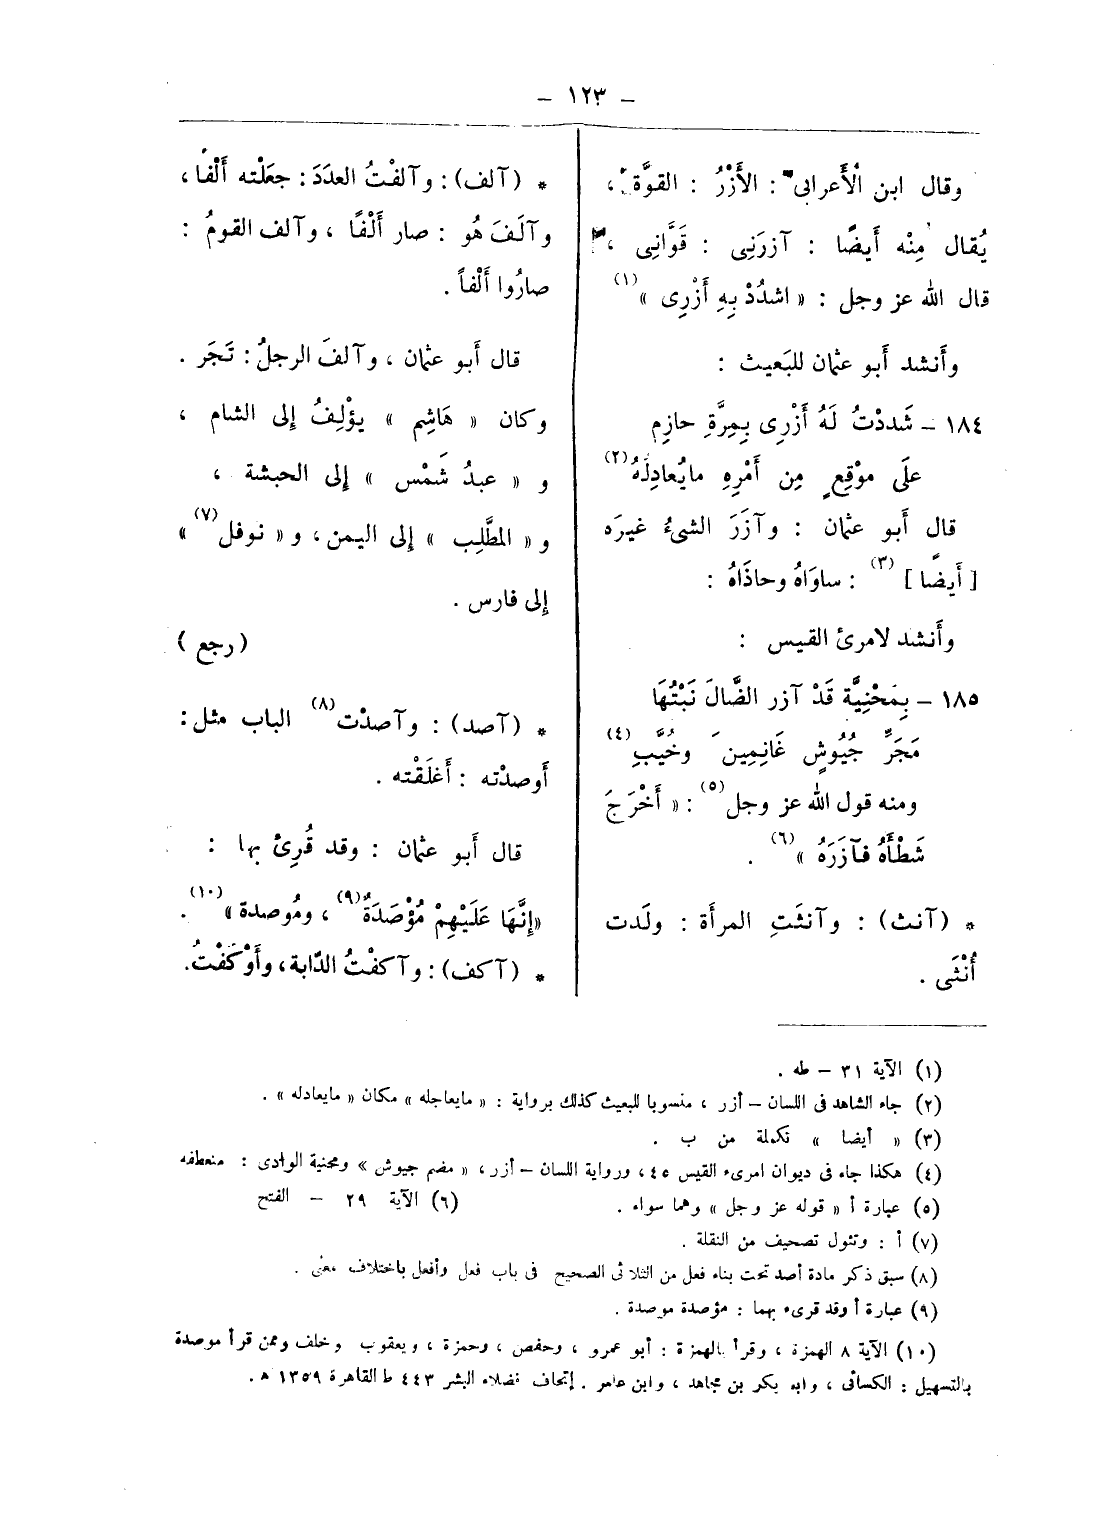 — ١٢٣ —
وقال ابن الْأَعرابى : الأَزْرُ : القوَّة ،
يُقال مِنْه أَيضًا : آزرَنِى : قَوَّانِى ،
قال الله عز وجل : « اشدُدْ بِهِ أَزْرِى »(١)
وأَنشد أَبو عثمان للبَعيث :
١٨٤ — شَددْتُ لَهُ أَزْرِى بِمِرَّةِ حازِم
علَى موْقِعٍ مِن أَمْرِهِ مايُعادِلُهُ(٢)
قال أَبو عثمان : وآزَرَ الشىءُ غيرَه
[ أَيضًا ](٣) : ساوَاهُ وحاذَاهُ :
وأَنشد لامرئ القيس :
١٨٥ — بِمَحْنِيَّة قَدْ آزر الضَّالَ نَبْتُهَا
مَجَرِّ جُيُوشٍ غَانِمِينَ وخُيَّبِ(٤)
ومنه قول الله عز وجل(٥) : « أَخْرَجَ
شَطْأَهُ فآزَرَهُ »(٦) .
* (آنث) : وآنثَتِ المرأَة : ولَدت
أُنْثَى .
* (آلف) : وآلفْتُ العدَدَ : جعَلْته أَلْفًا ،
وآلَفَ هُو : صار أَلْفًا ، وآلف القومُ :
صارُوا أَلْفاً .
قال أَبو عثمان ، وآلفَ الرجلُ : تَجَر .
وكان « هَاشِم » يؤْلِفُ إلى الشام ،
و « عبدُ شَمْس » إلى الحبشة ،
و « المطَّلِب » إلى اليمن ، و « نوفل(٧) »
إلى فارس .
( رجع )
* (آصد) : وآصدْت(٨) الباب مثل :
أَوصدْته : أَغلَقْته .
قال أَبو عثمان : وقد قُرِئ بها :
«إِنَّهَا عَلَيْهِمْ مُؤْصَدَةٌ(٩) ، ومُوصدة»(١٠) .
* (آكف) : وآكفْتُ الدّابة ، وأَوْكَفْتُ.
(١) الآية ٣١ — طه .
(٢) جاء الشاهد فى اللسان — أزر ، منسوبا للبعيث كذلك برواية : « مايعاجله » مكان « مايعادله » .
(٣) « أيضا » تكملة من ب .
(٤) هكذا جاء فى ديوان امرىء القيس ٤٥ ، ورواية اللسان — أزر ، « مضم جيوش » ومحنية الوادى : منعطفه
(٥) عبارة أ « قوله عز وجل » وهما سواء . (٦) الآية ٢٩ — الفتح
(٧) أ : وتئول تصحيف من النقلة .
(٨) سبق ذكر مادة أصد تحت بناء فعل من الثلاثى الصحيح فى باب فعل وأفعل باختلاف معنى .
(٩) عبارة أ وقد قرىء بهما : مؤصدة موصدة .
(١٠) الآية ٨ الهمزة ، وقرأ بالهمزة : أبو عمرو ، وحفص ، وحمزة ، ويعقوب وخلف وممن قرأ موصدة
بالتسهيل : الكسائى ، وابو بكر بن مجاهد ، وابن عامر . إتحاف فضلاء البشر ٤٤٣ ط القاهرة ١٣٥٩ ه .